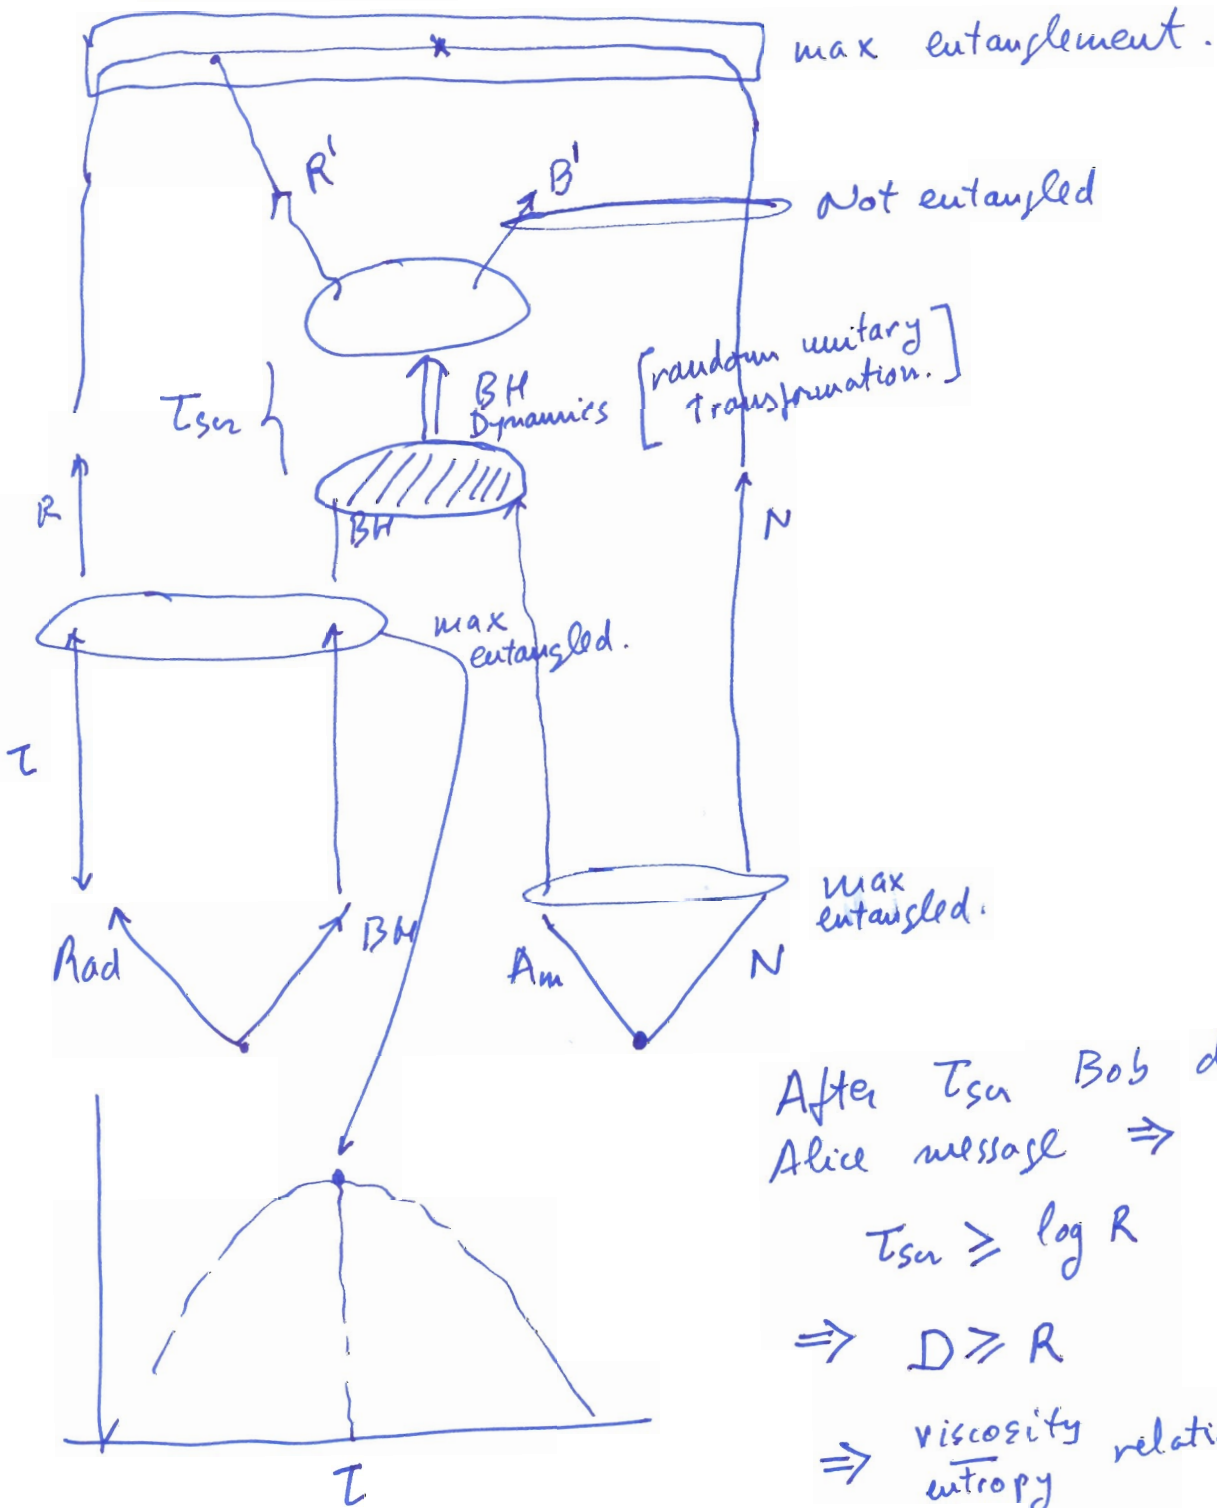 max entanglement.
R'
B'
Not entangled
τscr
BH
Dynamics
[random unitary
transformation.]
R
BH
N
max
entangled.
τ
max
entangled.
Rad
BH
Am
N
After τscr Bob
Alice message ⇒
τscr ⩾ log R
⇒ D ⩾ R
⇒ viscosity
entropy
τ